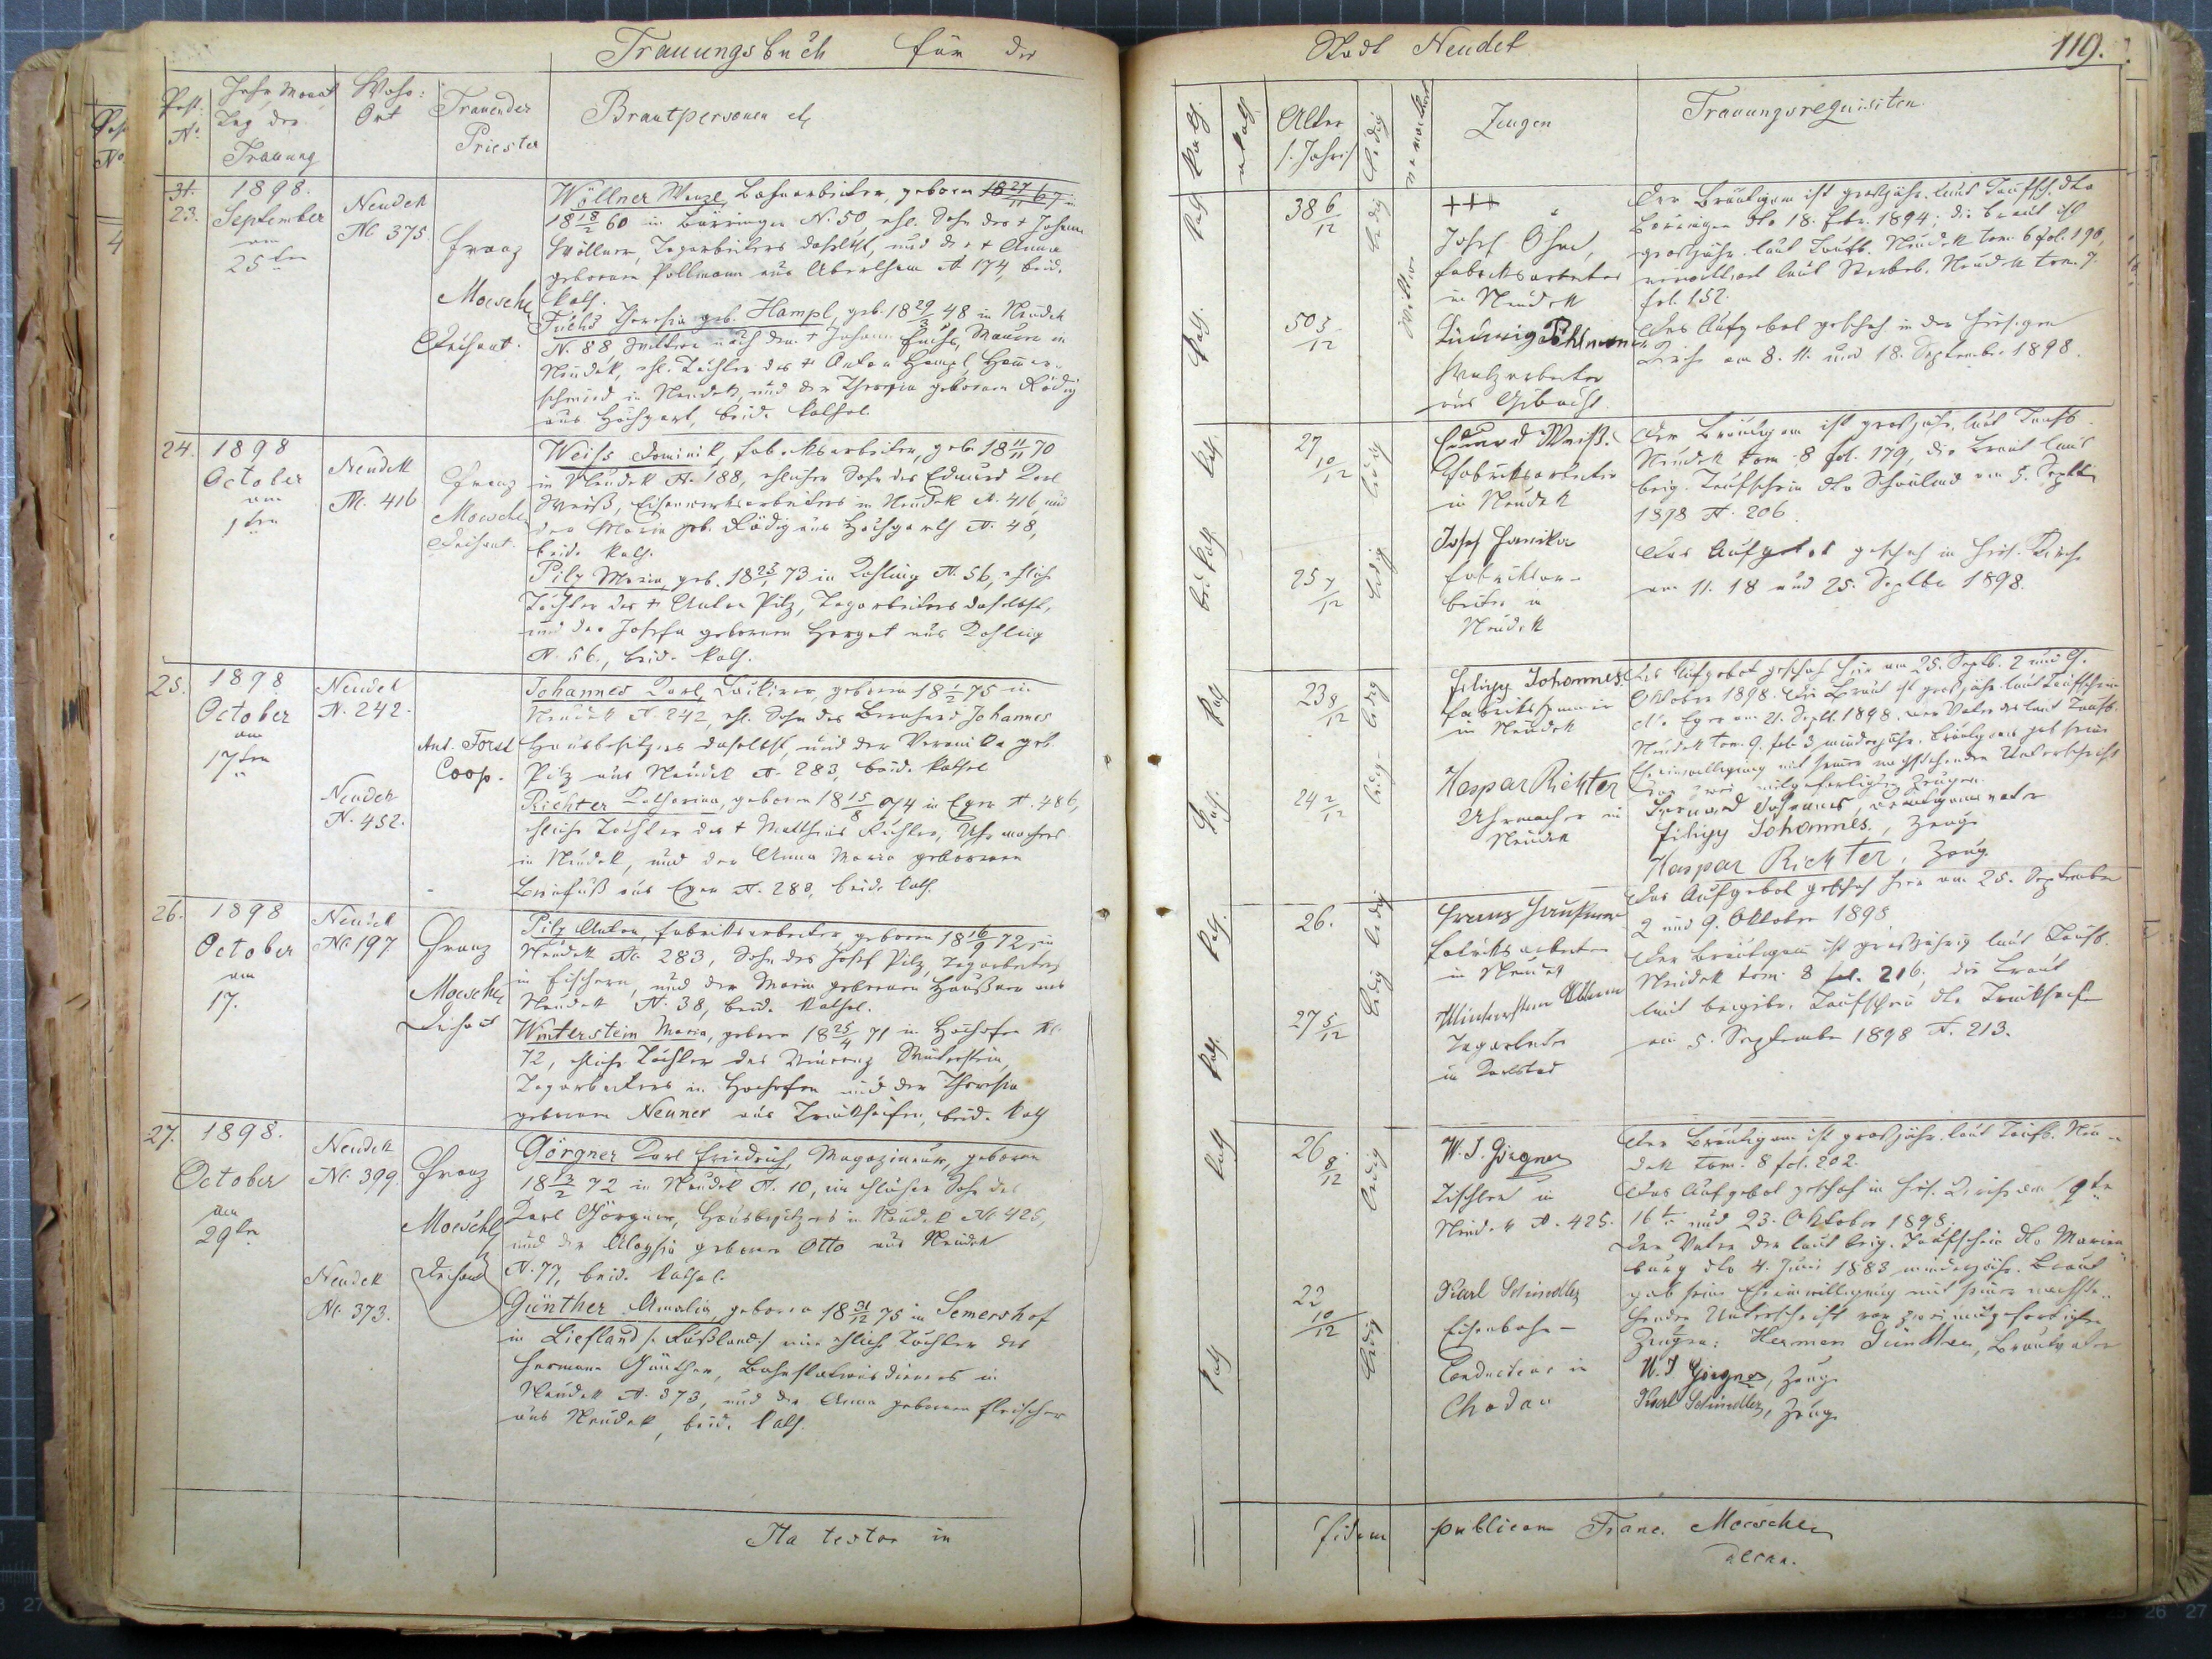 Trauungsbuch für die
Post. No
Jahr, Monat
Tag der
Trauung
Wohn:
Ort
Trauender
Priester
Brautpersonen etc
31.
23.
1898.
September
am
25ten
Neudek
No 375
Franz
Moeschl
Dechant.
Wöllner Wenzl, Bahnarbeiter, geboren
18 18/2 60 in Bärringen N. 50, ehl. Sohn des + Johann
Wöllner, Tagarbeiters daselbst, und der + Anna
geborenen Pollmann aus Abertham N 174, beide
kath.
Fuchs Theresia geb. Hampl, geb. 18 29/3 48 in Neudek
N. 88 Wittwe nach dem + Johann Fuchs, Maurer in
Neudek, ehl. Tochter des + Anton Hampl, Hammer-
schmied in Neudek, und der Theresia geborenen Rödig
aus Hochgart, beide kathol.
24.
1898
October
am
1ten
Neudek
N. 416
Franz
Moeschl
Dechant.
Weiss Dominik, Fabriksarbeiter, geb. 18 11/11 70
in Neudek N. 188, ehlicher Sohn des Eduard Karl
Weiß, Eisenwerksarbeiters in Neudek N. 416, und
der Maria geb. Rödig aus Hochgarth N. 48,
beide kath.
Pilz Maria, geb. 18 23/1 73 in Kohling N. 56, ehliche
Tochter des + Anton Pilz, Tagarbeiters daselbst,
und der Josefa geborenen Herget aus Kohling
N. 56, beide kath.
25.
1898
October
am
17ten
Neudek
N. 242.
Neudek
N. 452.
Ant. Forst
Coop.
Johannes Karl, geboren 18 1/2 75 in
Neudek N. 242, ehl. Sohn des Bernhard Johannes
Hausbesitzers daselbst, und der Veronika geb.
Pilz aus Neudek N. 283, beide kathol
Richter Katharina, geboren 18 15/8 74 in Eger N. 486,
ehliche Tochter des + Matthias Richter, Uhrmachers
in Neudek, und der Anna Maria geborenen
aus Eger N. 283, beide kath.
26.
1898
October
am
17.
Neudek
No 197
Franz
Moeschl
Dechant
Pilz Anton, Fabriksarbeiter geboren 18 16/9 72, in
Neudek No. 283, Sohn des Josef Pilz, Tagarbeiters
in Fischern, und der Maria geborenen Haußner aus
Neudek N. 38, beide kathol.
Winterstein Maria, geboren 18 25/4 71 in Hochofen No.
72, ehliche Tochter des Vincenz Winterstein,
Tagarbeiters in Hochofen und der Theresia
geborenen Neuner aus Trinkseifen, beide kath
27.
1898.
October
am
29ten
Neudek
No. 399.
Neudek
No. 373.
Franz
Moeschl
Dechant
Görgner Karl Friedrich, Magazineur, geboren
18 13/2 72 in Neudek N. 10, ein ehlicher Sohn des
Karl Görgner, Hausbesitzers in Neudek No 425,
und der Aloysia geborene Otto aus Neudek
N. 77, beide kathol.
Günther Amalia, geboren 18 31/12 75 in Semershof
in Liefland /: Rußland :/ eine ehliche Tochter des
Hermann Günther, Bahnstationsdieners in
Neudek N. 373, und der Anna geborenen Fleischer
aus Neudek, beide kath.
Ita testor in
Stadt Neudek
119.
kath.
akath.
Alter
/: Jahre :/
ledig
verwittwet
Zeugen
Trauungsrequisiten.
kath
38 6/12
ledig
+++
Josef
Fabriksarbeiter
in Neudek
kath.
50 5/12
Wittwe
Ludwig Pöhlmann
Walzarbeiter
aus Gibacht.
Der Bräutigam ist großjähr. laut Taufsch. dto
Bäringen dto 18. Febr. 1894; die Braut ist
großjähr. laut Taufb. Neudek tom. 6 fol. 196,
verwittwet laut Sterbeb. Neudek tom. 7.
fol. 152.
Das Aufgebot geschah in der hiesigen
Kirche am 8. 11. und 18. September 1898.
kath.
27 10/12
ledig
Eduard Weiß.
Fabriksarbeiter
in Neudek
kath
25 7/12
ledig
Josef Hanika
Fabriksar-
beiter in
Neudek
Der Bräutigam ist großjähr. laut Taufb.
Neudek tom. 8 fol. 179, die Braut laut
beig. Taufschein dto Schönlind am 5. Septbr
1898 N. 206.
Das Aufgebot geschah in hies. Kirche
am 11. 18 und 25. Septbr 1898.
kath
23 8/12
ledig
Filipp Johannes.
Fabriksspinner
in Neudek
kath.
24 2/12
ledig
Kaspar Richter
Uhrmacher in
Neudek
Das Aufgebot geschah hier am 25. Septb. 2 und 9.
Oktober 1898. Die Braut ist großjähr. laut Taufschein
dto Eger am 21. Septb. 1898. Der Vater des laut Taufb.
Neudek tom. 9. fol. 3 minderjähr. Bräutigams gab seine
Eheeinwilligung mit seiner nachstehenden Unterschrift
vor zwei mitgefertigten Zeugen.
Bernard Johannes, Bräutigamsvater
Filipp Johannes, Zeuge
Kaspar Richter, Zeuge
kath.
26.
ledig
Franz
Fabriksarbeiter
in Neudek
kath.
27 5/12
ledig
Winterstein
Tagarbeiter
in Karlsbad
Das Aufgebot geschah hier am 25. September
2 und 9. Oktober 1898
Der Bräutigam ist großjährig laut Taufb.
Neudek tom. 8 fol. 216; die Braut
laut beigebr. Taufschein dto Trinkseifen
am 5. September 1898 N. 213.
kath
26 8/12
ledig
W. J. Görgner
Tischler in
Neudek N. 425.
kath
22 10/12
ledig
Karl Schindler
Eisenbahn-
Conducteur in
Chodau
Der Bräutigam ist großjähr. laut Taufb. Neu-
dek tom. 8 fol. 202.
Das Aufgebot geschah in hies. Kirche am 9te
16te und 23. Oktober 1898.
Der Vater der laut beig. Taufschein dto Marien-
burg dto 4. Juni 1883 minderjähr. Braut
gab seine Eheeinwilligung mit seiner nachste-
henden Unterschrift vor zwei mitgefertigten
Zeugen: Herman Günther, Brautvater
W. J Görgner, Zeuge
Karl Schindler, Zeuge
fidem publicam Franc. Moeschl
decan.